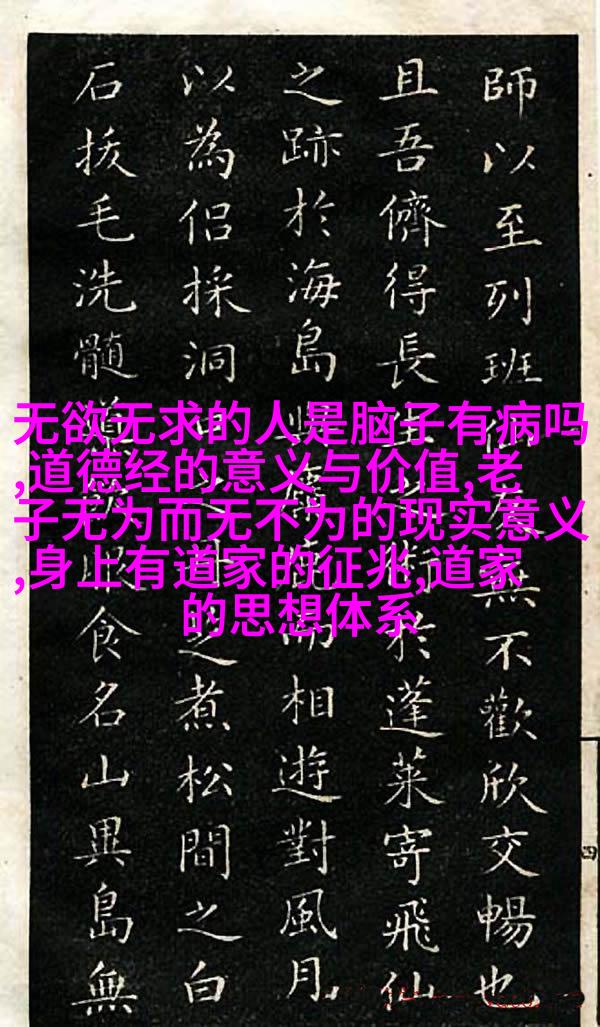 无欲无求的人是脑子有病吗
,道德经的意义与价值,老
子无为而无不为的现实意义
,身上有道家的征兆,道家
的思想体系
師以至列班無不歡欣交暢也
且吾儕得長生之術於蓬萊寄飛仙
之跡於海島與而相遊對風月
以為侶採洞之煮松間之白
石拔毛洗髓食名山異島無